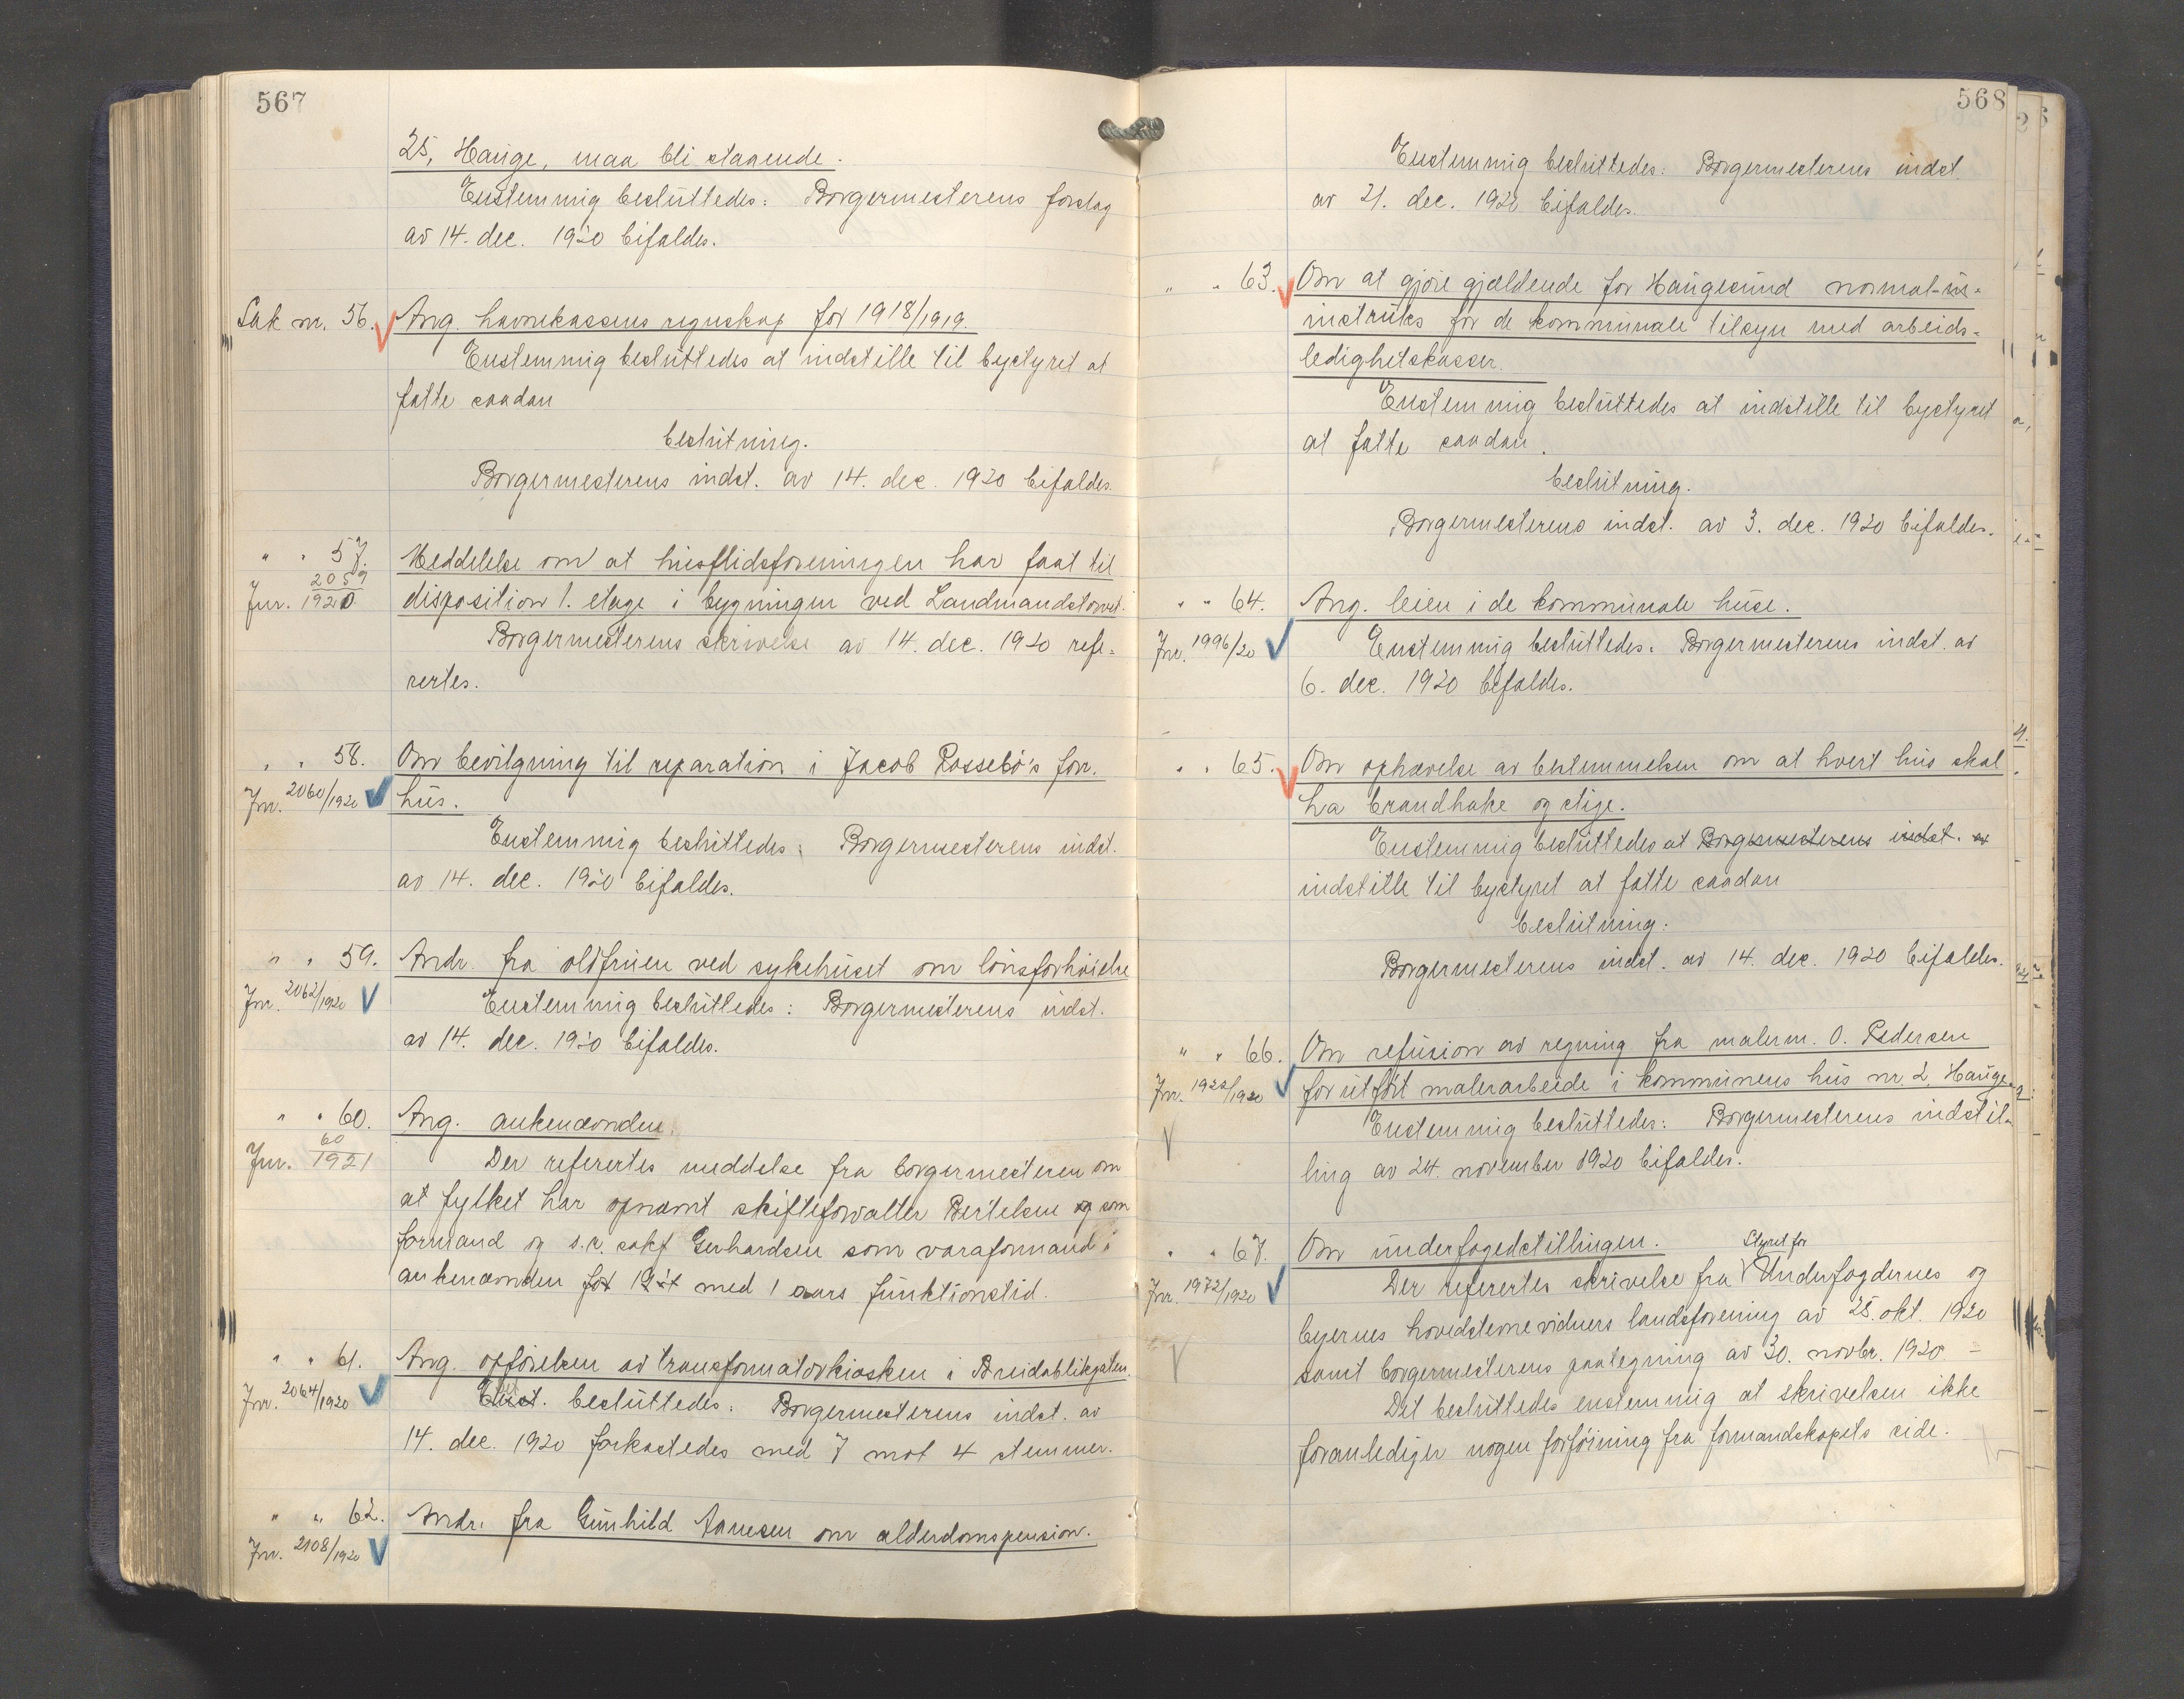 567
25, Hauge, maa bli staaende.
Enstemmig besluttedes: Borgermesterens forslag
av 14. dec. 1920 bifaldes.
Sak nr. 56. Ang. havnekassens regnskap for 1918/1919.
Enstemmig besluttedes at indstille til bystyret at
fatte saadan
beslutning.
Borgermesterens indst. av 14. dec. 1920 bifaldes.
" " 57. Meddelelse om at husflidsforeningen har faat til
Jnr. 2059/1920. disposition 1. etage i bygningen ved Landmandstorvet.
Borgermesterens skrivelse av 14. dec. 1920 refe-
rertes.
" " 58. Om bevilgning til reparation i Jacob Rossebø's forr.
Jnr. 2060/1920 hus.
Enstemmig besluttedes: Borgermesterens indst.
av 14. dec. 1920 bifaldes.
" " 59. Andr. fra oldfruen ved sykehuset om lønsforhøielse
Jnr. 2062/1920 Enstemmig besluttedes: Borgermesterens indst.
av 14. dec. 1920 bifaldes.
" " 60. Ang. ankenævnden
Jnr. 60/1921 Der refertes meddelse fra borgermesteren om
at fylket har opnævnt skifteforvalter Bertelsen og som
formand og o.r. sakf. Gerhardsen som varaformand i
ankenævnden for med 1 aars funktionstid.
" " 61. Ang. opførelsen av transformatorkiosken i Breidablikgaten.
Jnr. 2064/1920 Enst. besluttedes: Borgermesterens indst. av
14. dec. 1920 forkastedes med 7 mot 4 stemmer.
" " 62. Andr. fra Gunhild Aanesen om alderdomspension.
Jnr. 2108/1920
568
Enstemmig besluttedes: Borgermesterens indst.
av 21. dec. 1920 bifaldes.
" " 63. Om at gjøre gjældende for Haugesund normal-in-
instruks for de kommunale tilsyn med arbeids-
ledighetskasser.
Enstemmig besluttedes at indstille til bystyret
at fatte saadan
beslutning.
Borgermesterens indst. av 3. dec. 1920 bifaldes.
" " 64. Ang. leien i de kommunale huse.
Jnr. 1996/20 Enstemmig besluttedes: Borgermesterens indst. av
6. dec. 1920 bifaldes.
" " 65. Om ophævelse av bestemmelsen om at hvert hus skal
ha brandhake og stige.
Enstemmig besluttedes at Borgermesterens indst. av
indstille til bystyret at fatte saadan
beslutning:
Borgermesterens indst. av 14. dec. 1920 bifaldes.
" " 66. Om refusion av regning fra malerm. O. Pedersen
Jnr. 1922/1920 for utført malerarbeide i kommunens hus nr. 2, Hauge.
Enstemmig besluttedes: Borgermesterens indstil-
ling av 24. november 1920 bifaldes.
" " 67. Om underfogedstillingen.
Styret for
Jnr. 1972/1920 Der refertes skrivelse fra Underfogdernes og
byernes hovedstevnevidners landsforening av 25. okt. 1920
samt borgermesterens paategning av 30. novbr. 1920 -
Det besluttedes enstemmig at skrivelsen ikke
foranlediger nogen forføining fra formandskapets side.